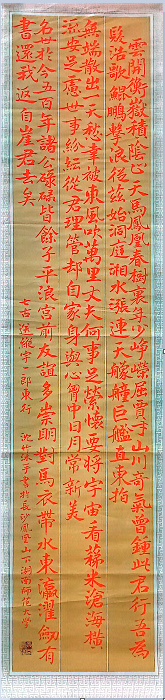 雲開衡嶽積陰止天馬鳳凰春樹裏年少崢嶸屈賈才山川奇氣曾鍾此君行吾為
髮浩歌鯤鵬擊浪從茲始洞庭湘水漲連天艟艨巨艦直東指
無端散出一天愁幸被東風吹萬里丈夫何事足縈懷要將宇宙看稊米滄海橫
流安足慮世事紛紜從君理管却自家身與心胸中日月常新美
名世於今五百年諸公碌碌皆餘子平浪宮前友誼多崇明對馬衣帶水東瀛濯劍有
書還我返自崖君去矣
七古送縱宇一郎東行 書於長沙鳳凰山下湖南師範大學